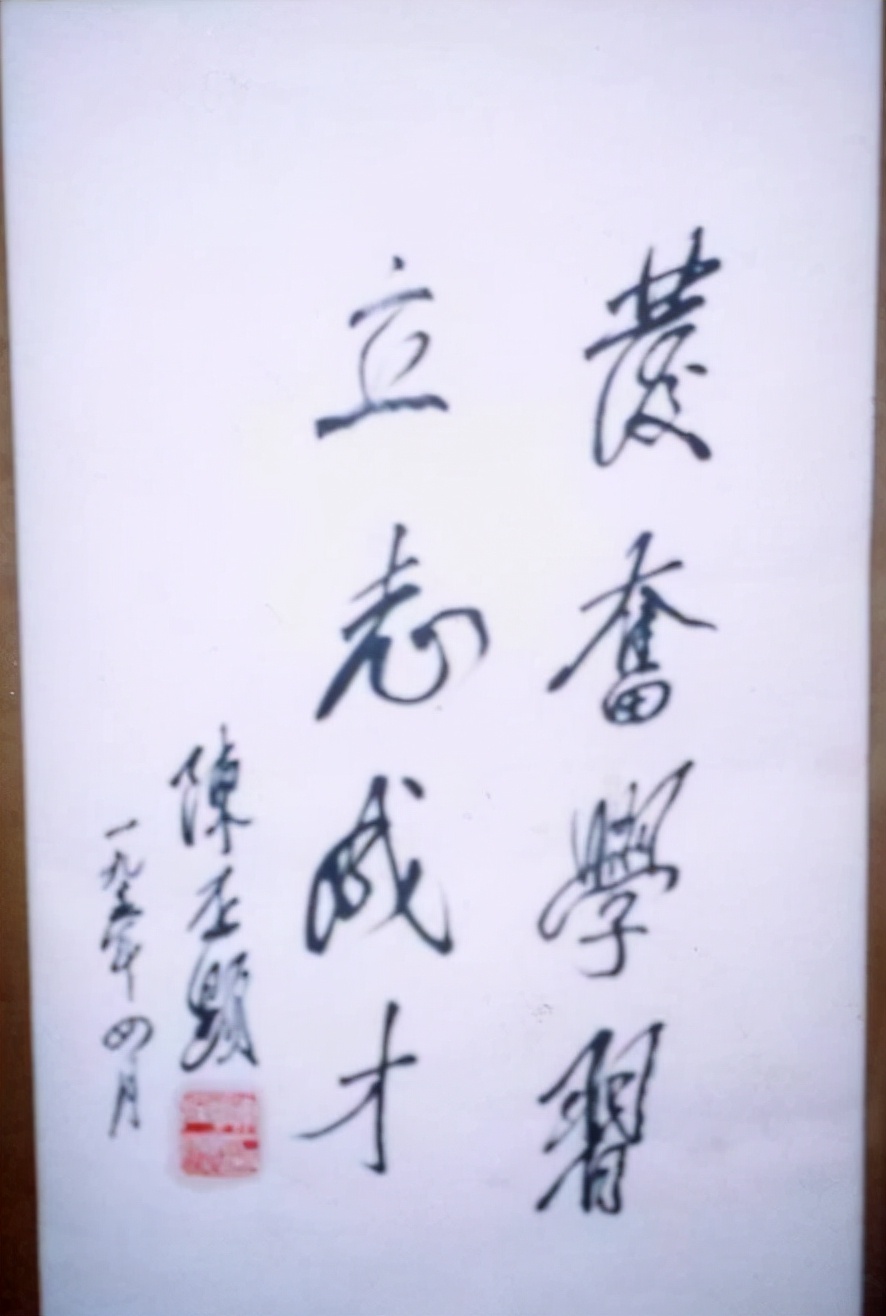 發奮學習
立志成才
陳丕顯
四月